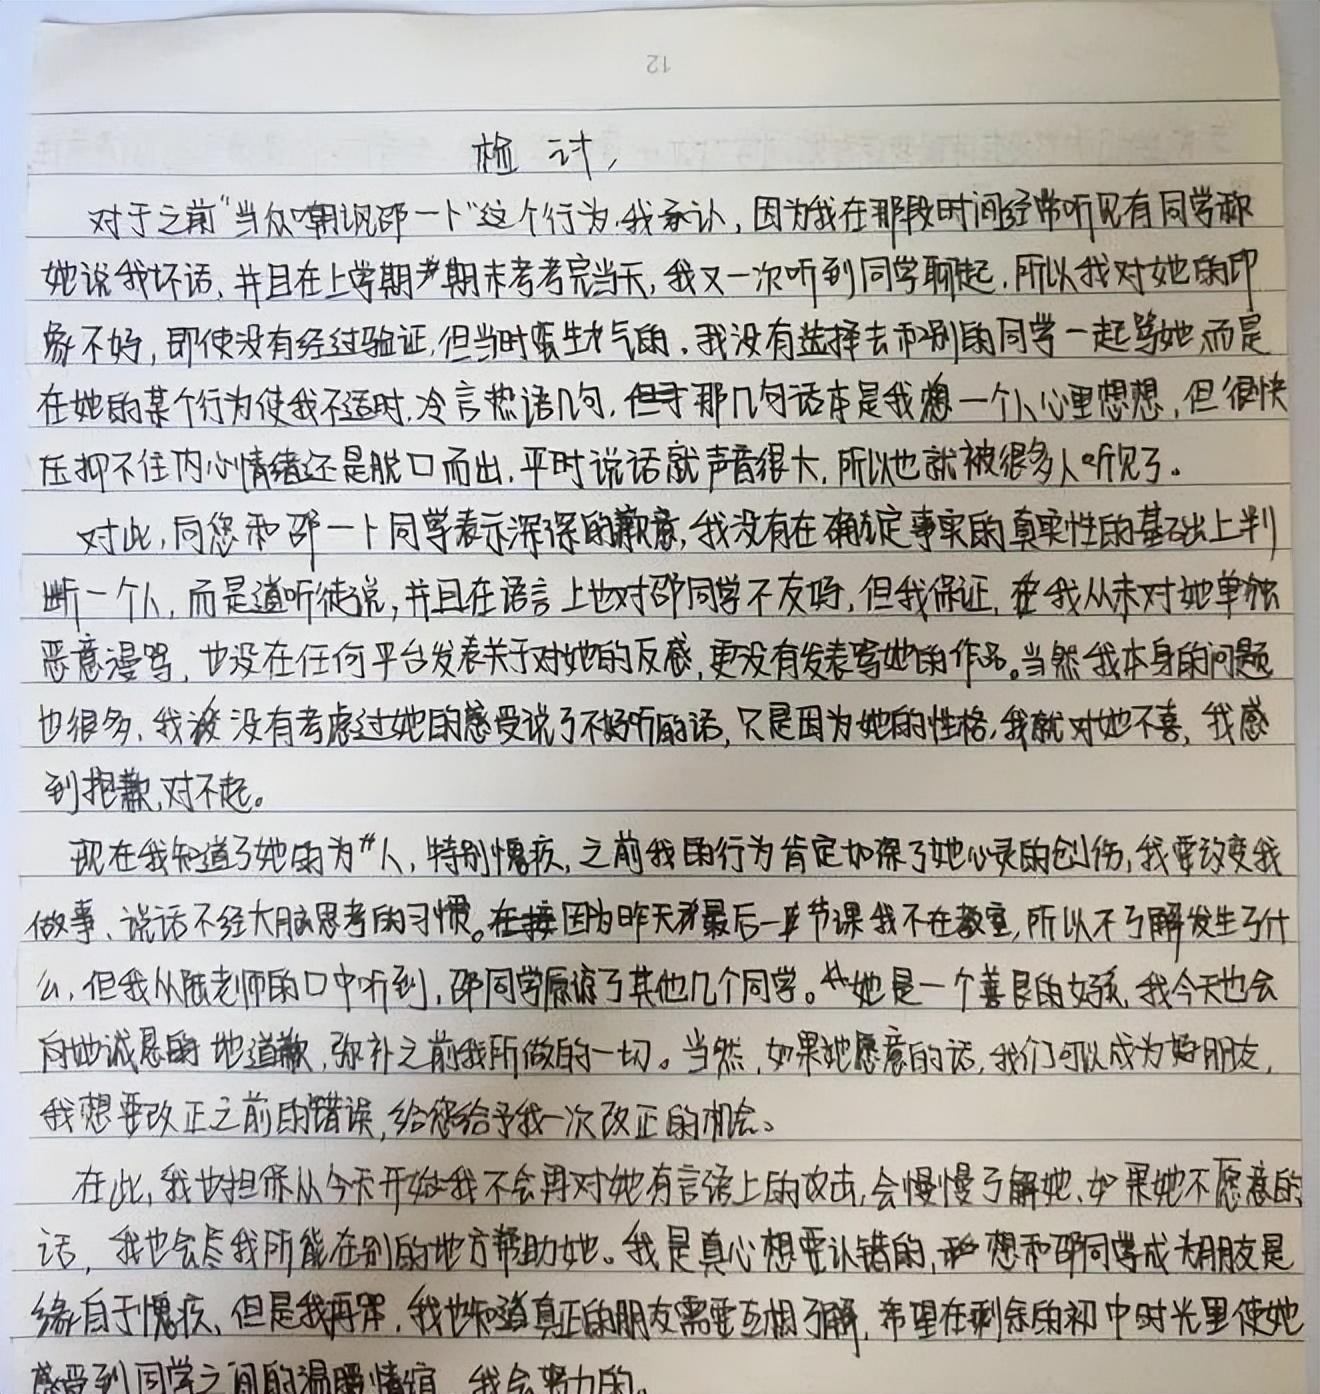 12
检讨,
对于之前“当众嘲讽邵一卜”这个行为,我承认,因为我在那段时间经常听见有同学称
她说我坏话,并且在上学期期末考考完当天,我又一次听到同学聊起,所以我对她的印
象不好,即使没有经过验证,但当时蛮生气的,我没有选择去和别的同学一起骂她,而是
在她的某个行为使我不适时,冷言热语几句,那几句话本是我想一个人心里想想,但很快
压抑不住内心情绪还是脱口而出,平时说话就声音很大,所以也就被很多人听见了。
对此,向您和邵一卜同学表示深深的歉意,我没有在确定事实的真实性的基础上判
断一个人,而是道听徒说,并且在语言上也对邵同学不友好,但我保证,我从未对她单独
恶意谩骂,也没在任何平台发表关于对她的反感,更没有发表骂她的作品。当然我本身的问题
也很多,我没有考虑过她的感受说了不好听的话,只是因为她的性格,我就对她不喜,我感
到抱歉,对不起。
现在我知道了她的为人,特别愧疚,之前我的行为肯定加深了她心灵的创伤,我要改变我
做事、说话不经大脑思考的习惯。因为昨天最后一节课我不在教室,所以不了解发生了什
么,但我从陆老师的口中听到,邵同学原谅了其他几个同学。她是一个善良的女孩,我今天也会
向她诚恳的地道歉,弥补之前我所做的一切。当然,如果她愿意的话,我们可以成为好朋友,
我想要改正之前的错误,给您给予我一次改正的机会。
在此,我也担保从今天开始我不会再对她有言语上的攻击,会慢慢了解她,如果她不愿意的
话,我也会尽我所能在别的地方帮助她。我是真心想要认错的,想和邵同学成为朋友是
缘自于愧疚,但是我再,我也知道真正的朋友需要互相了解,希望在剩余的初中时光里使她
感受到同学之间的温暖情谊,我会努力的。